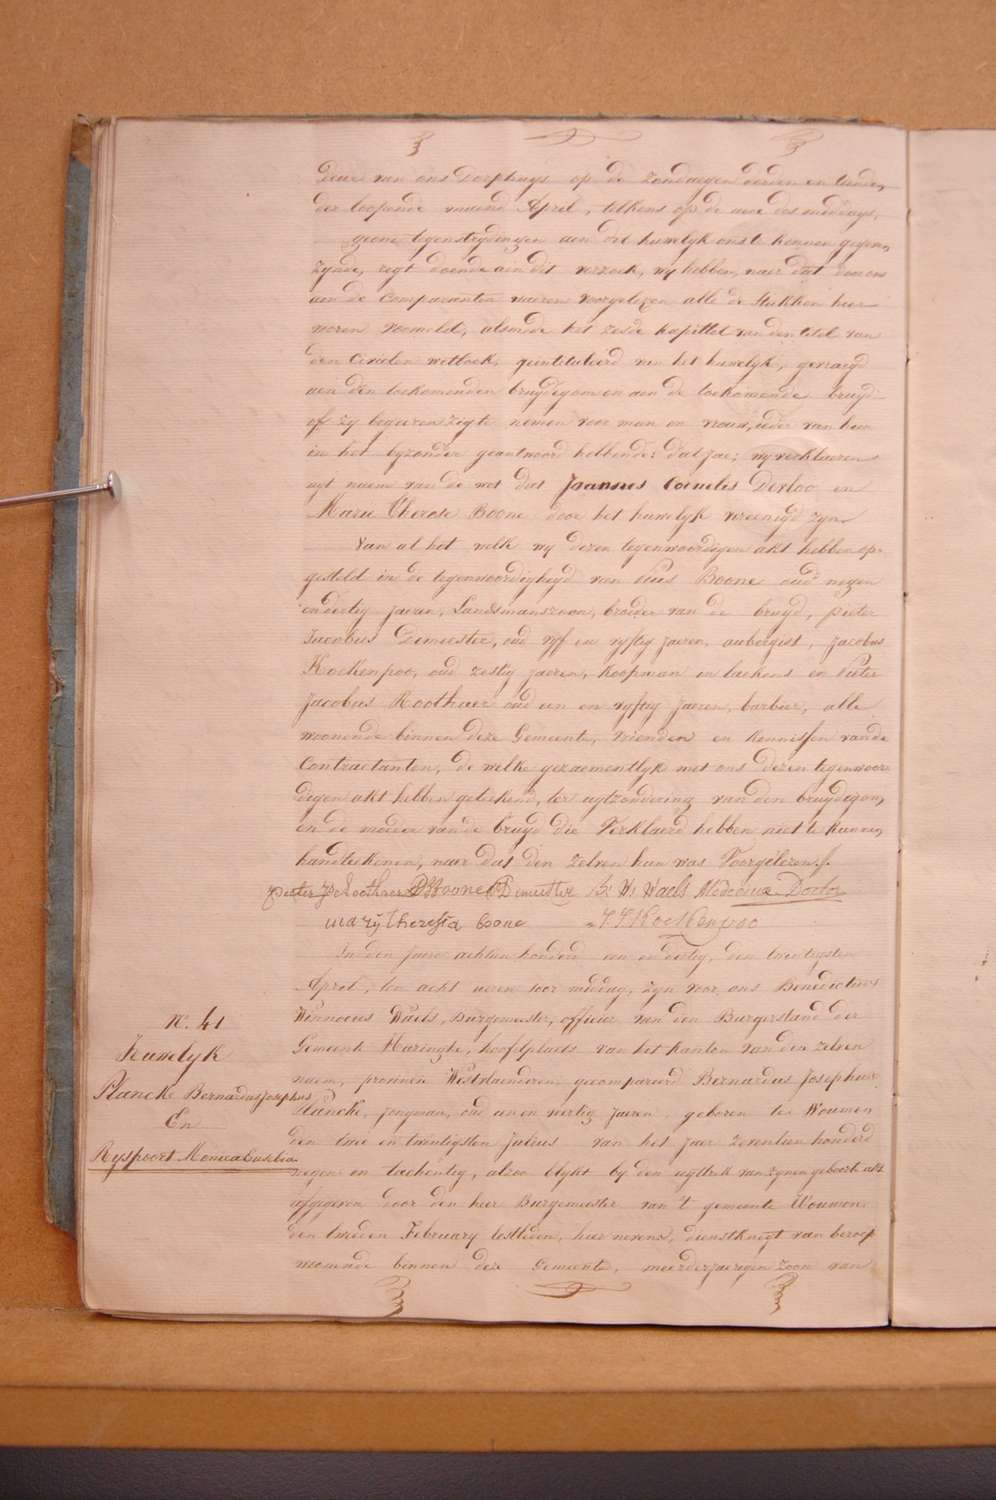 Deur van ons Dorphuys op de Zondaegen derden en tienden
der loopende maend April, telkens op de uere des middags,
geene tegenstrydingen aen dit huwelyk ons te kennen gegeven
zynde, regt doende aen dit verzoek, wy hebben, naer dat door ons
aen de Comparanten waeren voorgelezen alle de stukken hier
voren vermeld, alsmede het zesde kapittel van den titel van
den Civielen wetboek, geintituleerd van het huwelyk, gevraegd
aen den toekomenden bruydegom en aen de toekomende bruyd
of zy begeeren zigte nemen voor man en vrouw, ieder van hun
in het byzonder geantwoord hebbende: dat jae; wy verklaeren
uyt naem van de wet dat Joannes Cornelis Derloo en
Marie Therese Boone door het huwelyk vereenigd zyn.
Van al het welk wy dezen tegenwoordigen akt hebben op-
gesteld in de tegenwoordigheyd van Pius Boone oud negen
en dertig jaeren, Landsmanszoon, broeder van de bruyd, pieter
Jacobus Demeester, oud vyf en vyftig jaeren, aubergist, Jacobus
Kockenpoo, oud zestig jaeren, koopman in laekens en Pieter
Jacobus Roothaer oud een en vyftig jaeren, barbier, alle
woonende binnen deze Gemeente, vrienden en kennissen van de
Contractanten, de welke gezaementlyk met ons dezen tegenwoor-
digen akt hebben geteekend, ter uytzondering van den bruydegom
en de moeder van de bruyd die Verklaerd hebben niet te kunnen
handteekenen, naer dat den zelven hun was Voorgelezen.
Pieter Jb Roothaer P Boone PJ Demeester B: W: Waels Medecinæ Doctor
marij Theresia Boone J J Kockenpoo
In den jaere achtien honderd een en dertig, den twintigsten
April, ten acht ueren voor middag, zyn voor ons Benedictus
Winnocus Waels, Burgemeester, officier van den Burgerstand der
Gemeente Haringhe, hoofdplaets van het kanton van den zelven
naem, provincie Westvlaenderen gecompareerd Bernardus Josephus
N.º 41
Huwelyk
Plancke Bernardus Josephus
En
Ryspoort Monica Eusebia
Plancke, jongman, oud een en veertig jaeren, geboren te Woumen
den twee en twintigsten Julius van het jaer zeventien honderd
negen en tachentig, alzoo blykt by den uyttrek van zynen geboort akt
afgegeven door den heer Burgemeester van 't gemeente Woumen
den tweeden February lestleden, hier nevens, dienstknegt van beroep
woonende binnen deze Gemeente, meerderjaerigen zoon van